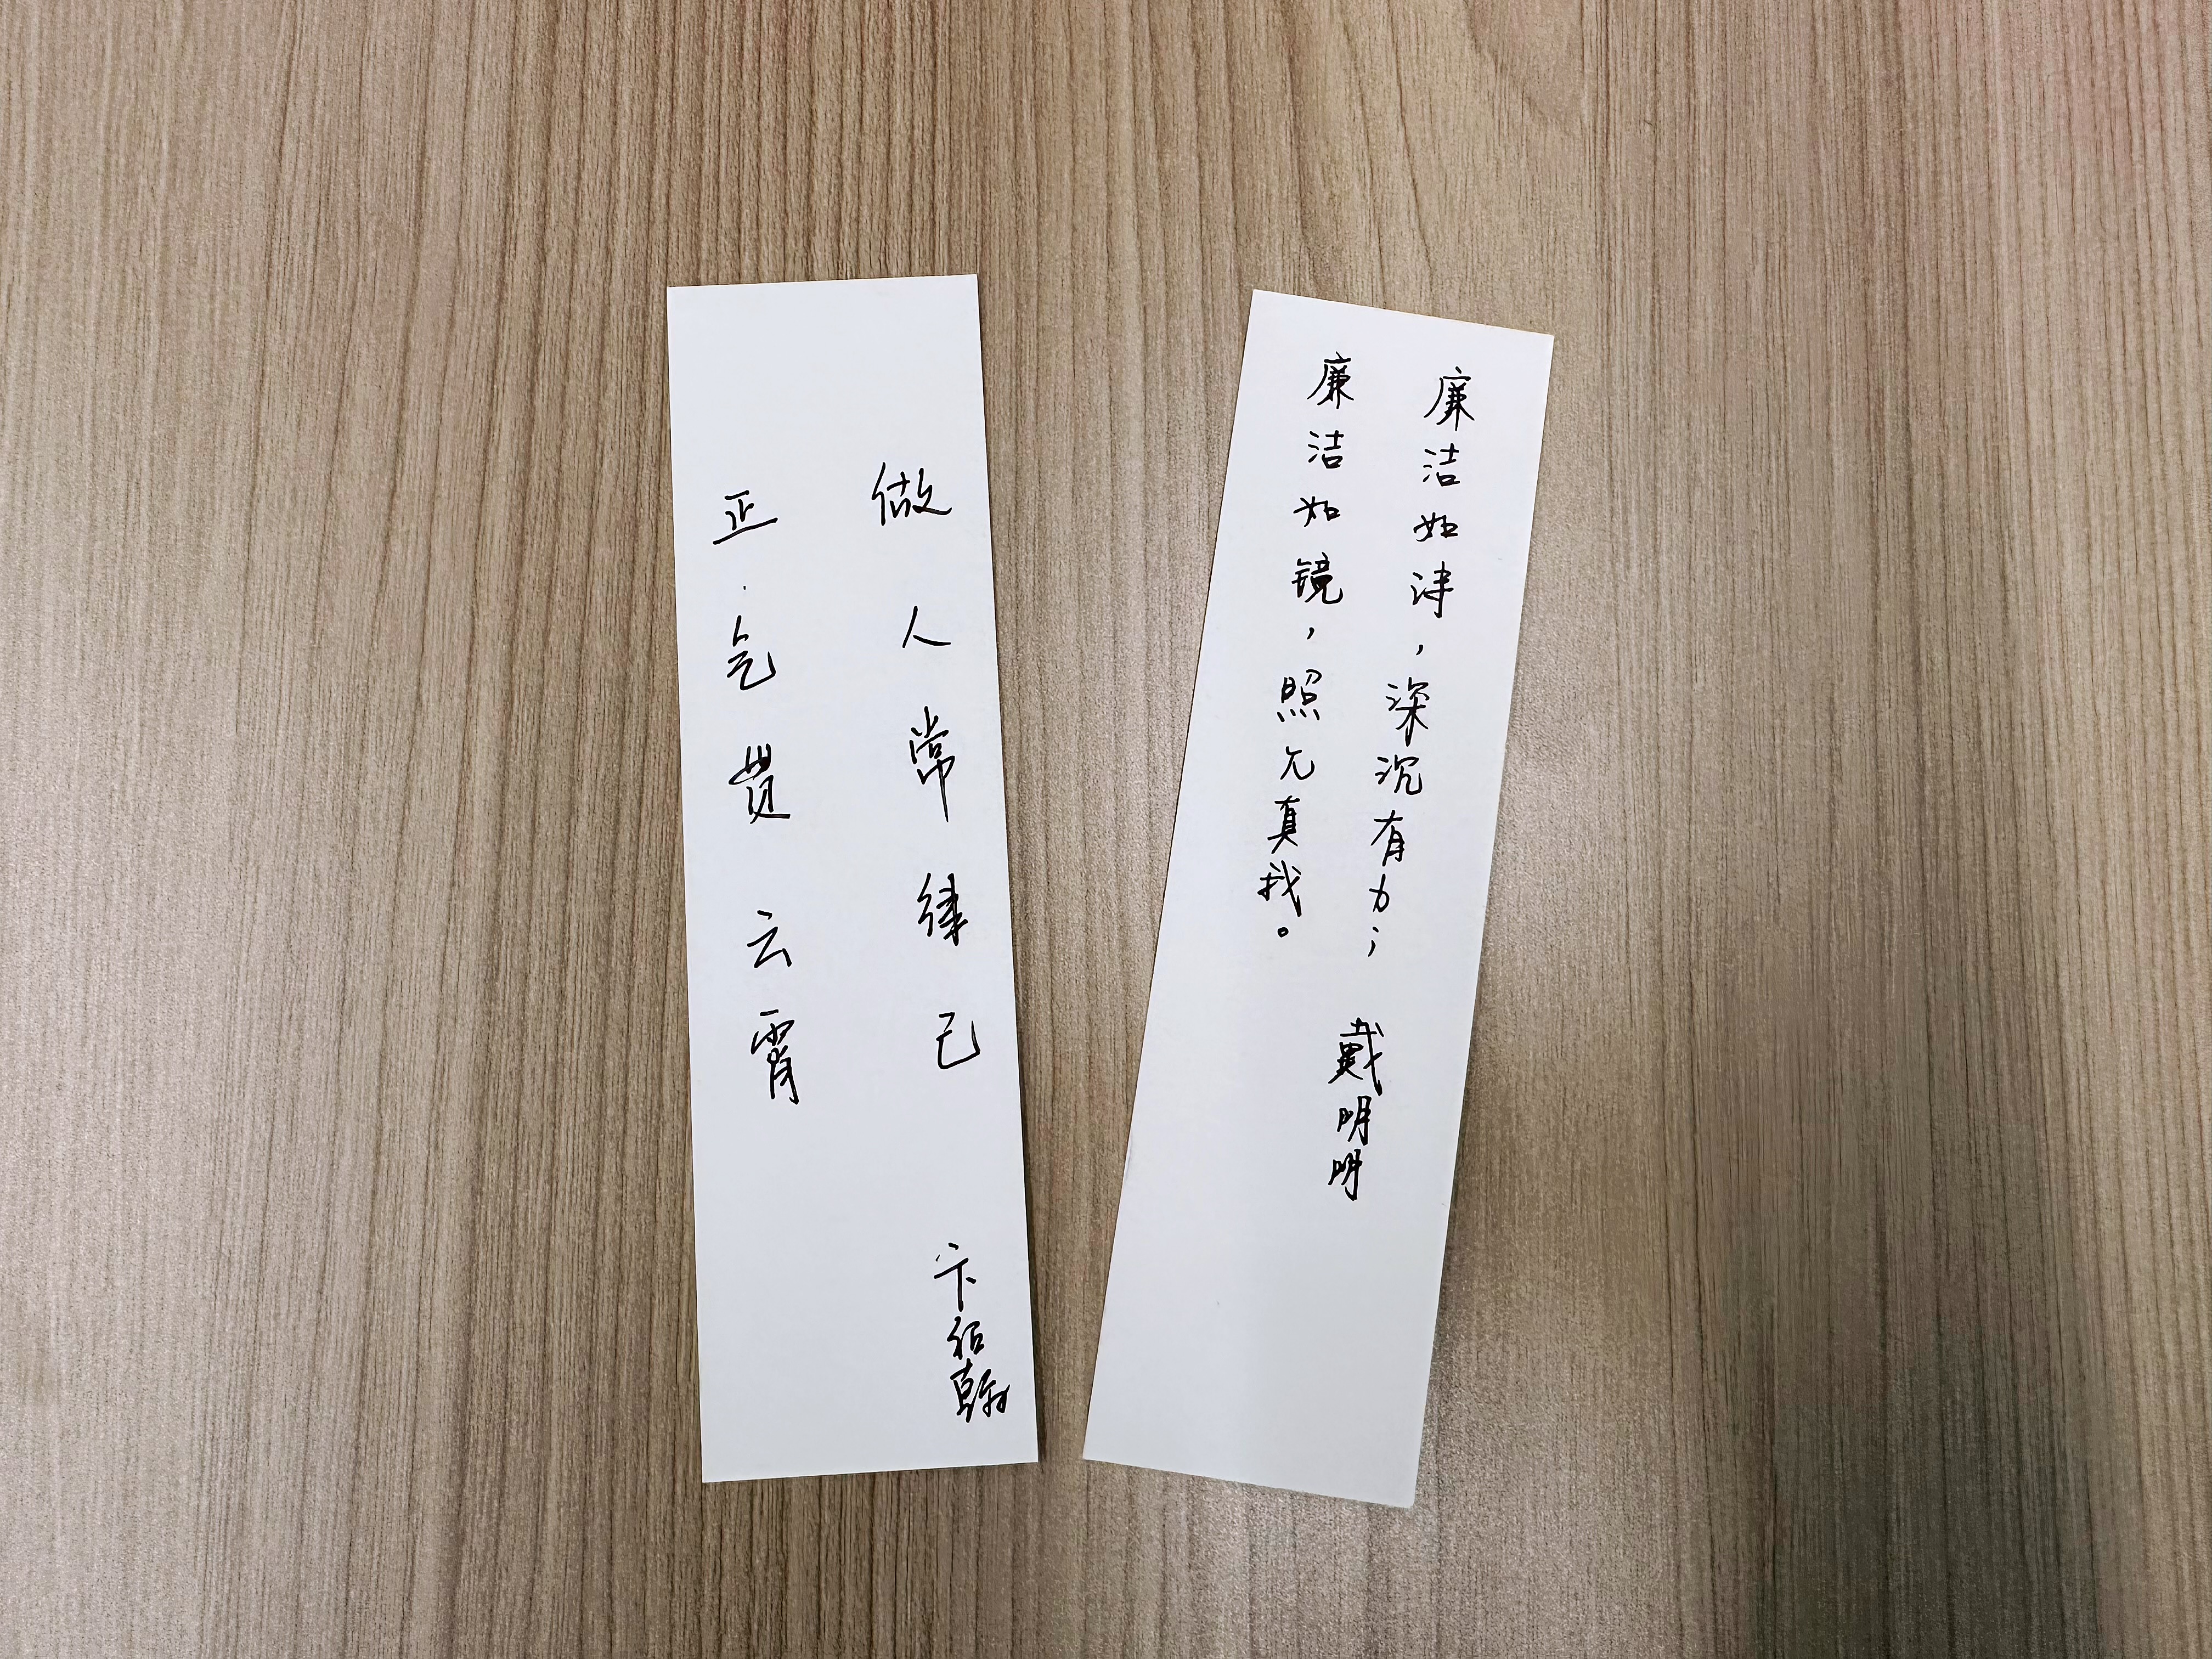 做人常律己
正气贯云霄
卞
廉洁如诗，深沉有力；
廉洁如镜，照见真我。
戴明明